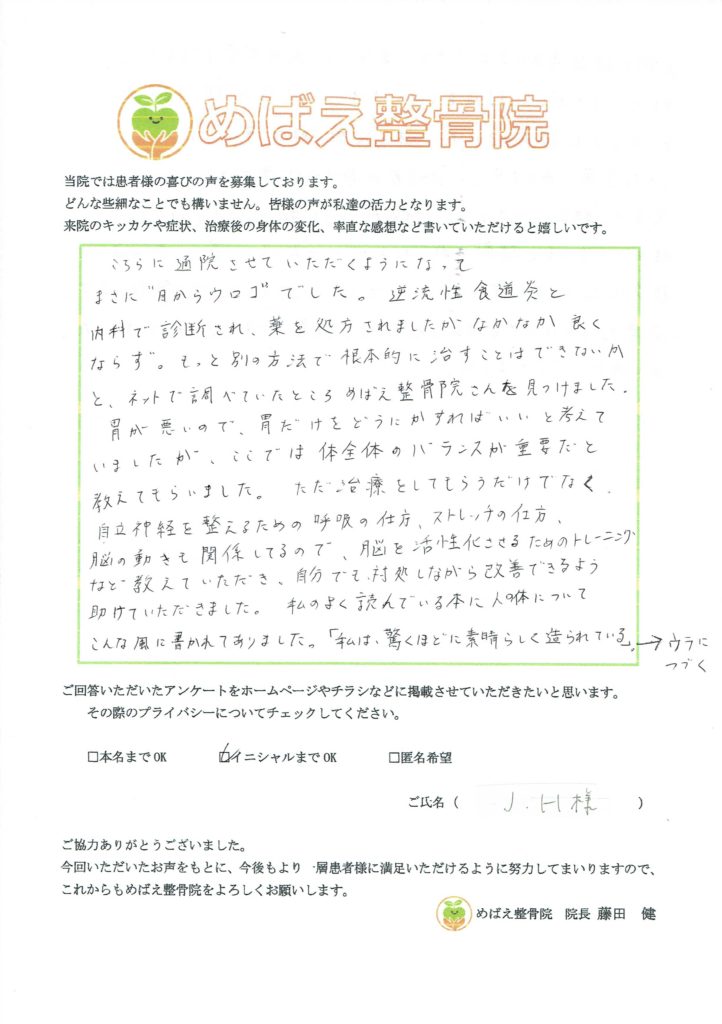 めばえ整骨院
当院では患者様の喜びの声を募集しております。
どんな些細なことでも構いません。皆様の声が私達の活力となります。
来院のキッカケや症状、治療後の身体の変化、率直な感想など書いていただけると嬉しいです。
こちらに通院させていただくようになって
まさに"目からウロコ"でした。逆流性食道炎と
内科で診断され、薬を処方されましたがなかなか良く
ならず。もっと別の方法で根本的に治すことはできないか
と、ネットで調べていたところめばえ整骨院さんを見つけました。
胃が悪いので、胃だけをどうにかすればいいと考えて
いましたが、ここでは体全体のバランスが重要だと
教えてもらいました。ただ治療をしてもらうだけでなく、
自立神経を整えるための呼吸の仕方、ストレッチの仕方、
脳の動きも関係してるので、脳を活性化させるためのトレーニング
など教えていただき、自分でも対処しながら改善できるよう
助けていただきました。私のよく読んでいる本に人の体について
こんな風に書かれてありました。「私は、驚くほどに素晴らしく造られている」。→ウラに
つづく
ご回答いただいたアンケートをホームページやチラシなどに掲載させていただきたいと思います。
その際のプライバシーについてチェックしてください。
□本名までOK ☑イニシャルまでOK □匿名希望
ご氏名（ J.H様 ）
ご協力ありがとうございました。
今回いただいたお声をもとに、今後もより一層患者様に満足いただけるように努力してまいりますので、
これからもめばえ整骨院をよろしくお願いします。
めばえ整骨院 院長 藤田 健